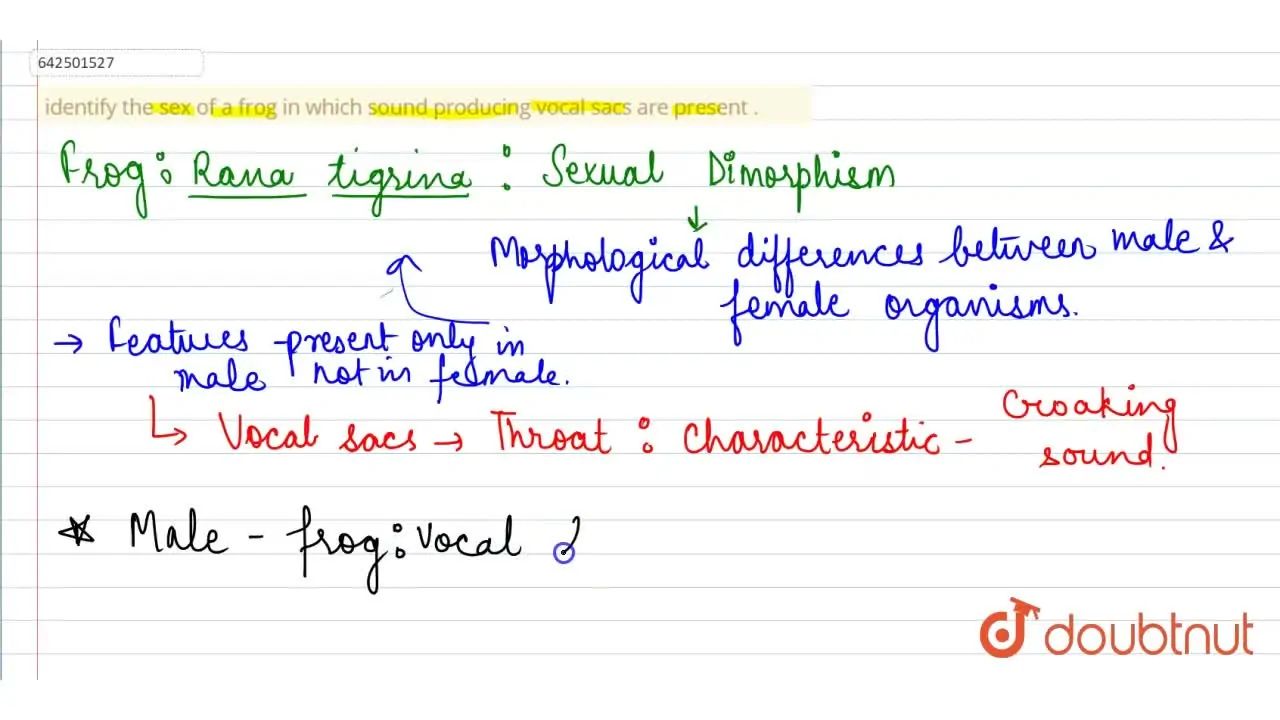 642501527
identify the sex of a frog in which sound producing vocal sacs are present .
Frog : Rana tigrina : Sexual Dimorphism
Morphological differences between male &
female organisms.
→ Features - present only in
male not in female.
Vocal sacs → Throat : Characteristic - Croaking
sound.
* Male - frog : Vocal
doubtnut